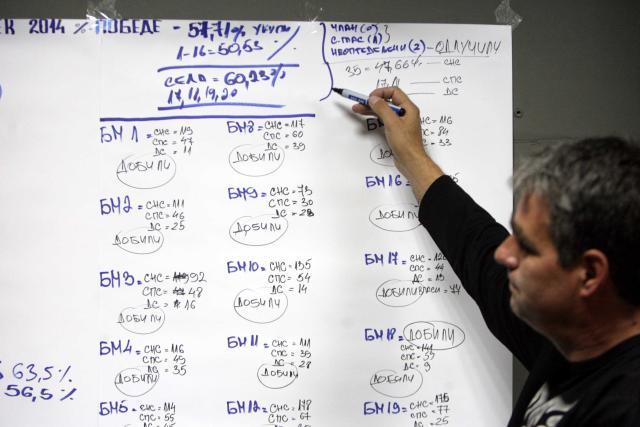 ЕК 2014 % ПОБЕДЕ - 57,71% УКУПН
1-16 = 50,53 %
СЕЛА = 60,23%
17, 11, 19, 20
ЧЛАН (0)
С-ГЛАС (1)
НЕОПРЕДЕЉЕНИ (2) - ОДЛУЧИЛИ
35 = 47,66% — СНС
17,11 — СПС
ДС
БМ 1 = СНС = 119
СПС = 47
ДС = 11
ДОБИЛИ
БМ 2 = СНС = 111
СПС = 46
ДС = 25
ДОБИЛИ
БМ 3 = СНС = 92
СПС = 48
ДС = 16
ДОБИЛИ
БМ 4 = СНС = 116
СПС = 45
ДС = 35
ДОБИЛИ
БМ 5 = СНС = 114
СПС = 55
63,5%
56,5%
БМ 8 = СНС = 117
СПС = 60
ДС = 39
ДОБИЛИ
БМ 9 = СНС = 73
СПС = 30
ДС = 28
ДОБИЛИ
БМ 10 = СНС = 135
СПС = 54
ДС = 14
ДОБИЛИ
БМ 11 = СНС = 111
СПС = 35
ДС = 28
ДОБИЛИ
БМ 12 = СНС = 148
СПС = 67
СНС = 116
СПС = 84
ДС = 33
БМ 16
ДОБИЛИ
БМ 17 = СНС = 126
СПС = 44
ДС = 13
ДОБИЛИ = 77
БМ 18 = ДОБИЛИ
СНС = 141
СПС = 35
ДС = 9
ДОБИЛИ
БМ 19 = СНС = 175
СПС = 77
ДС = 25